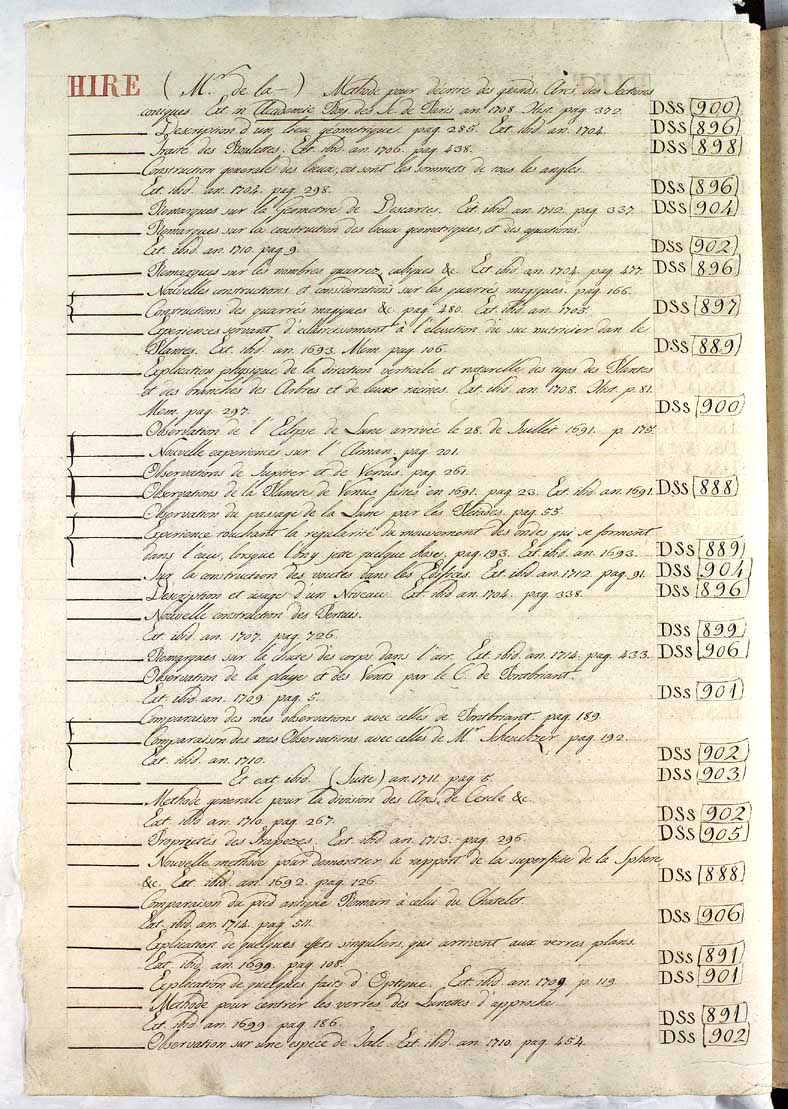 HIRE (Mr. de la —) Methode pour décrire des grands Arcs des Sections
coniques. Ext. in Academie Roy. des Sc. de Paris an. 1708. Hist. pag. 372. DSs 900
Description d'un lieu géometrique pag. 286. Ext. ibid. an. 1704. DSs 896
Traité des Roulettes. Ext. ibid. an. 1706. pag. 438. DSs 898
Construction generale des lieux, où sont les sommets de tous les angles.
Ext. ibid. an. 1704. pag. 298. DSs 896
Remarques sur la Geometrie de Descartes. Ext. ibid. an. 1712. pag. 337. DSs 904
Remarques sur la construction des lieux geometriques, et des equations.
Ext. ibid. an. 1710. pag. 9. DSs 902
Remarques sur les nombres quarrez, cubiques &c. Ext. ibid. an. 1704. pag. 477. DSs 896
Nouvelles constructions et considerations sur les quarrés magiques. pag. 166.
Constructions des quarrés magiques &c. pag. 480. Ext. ibid. an. 1705. DSs 897
Experiences servant d'eclaircissement à l'elevation du suc nutricier dan le
Plantes. Ext. ibid. an. 1693. Mem. pag. 106. DSs 889
Explication physique de la direction verticale et naturelle des tiges des Plantes
et des branches des Arbres et de leurs racines. Ext. ibid. an. 1708. Hist. p. 81.
Mem. pag. 297. DSs 900
Observation de l'Eclipse de Lune arrivée le 28. de Juillet 1691. p. 175.
Nouvelle experiences sur l'Aiman. pag. 201.
Observations de Jupiter et de Venus. pag. 261.
Observations de la Planete de Venus faites en 1691. pag. 23. Ext. ibid. an. 1691. DSs 888
Observation du passage de la Lune par les Pleiades. pag. 55.
Experience touchant la regularité du mouvement des ondes qui se forment
dans l'eau, lorsque l'on y jette quelque chose. pag. 193. Ext. ibid. an. 1693. DSs 889
Sur la construction des voutes dans les Edifices. Ext. ibid. an. 1712. pag. 91. DSs 904
Description et usage d'un Niveau. Ext. ibid. an. 1704. pag. 338. DSs 896
Nouvelle construction des Pertuis.
Ext. ibid. an. 1707. pag. 726. DSs 899
Remarques sur la chute des corps dans l'air. Ext. ibid. an. 1714. pag. 433. DSs 906
Observation de la pluye et des Vents par le C. de Pontbriant.
Ext. ibid. an. 1709. pag. 5. DSs 901
Comparaison des mes observations avec celles de Pontbriant. pag. 189.
Comparaison des mes Observations avec celles de Mr. Scheuchzer pag. 192.
Ext. ibid. an. 1710. DSs 902
Et ext. ibid. (Suite) an. 1711. pag. 5. DSs 903
Methode generale pour la division des Arcs de Cercle &c.
Ext. ibid. an. 1710. pag. 267. DSs 902
Proprietés des Trapezes. Ext. ibid. an. 1713. pag. 296. DSs 905
Nouvelle methode pour demontrer le rapport de la superficie de la Sphere
&c. Ext. ibid. an. 1692. pag. 126. DSs 888
Comparaison du pied antique Romain à celui du Chatelet.
Ext. ibid. an. 1714. pag. 511. DSs 906
Explication de quelques effets singuliers, qui arrivent aux verres plans.
Ext. ibid. an. 1699. pag. 108. DSs 891
Explication de quelques faits d'Optique. Ext. ibid. an. 1709. p. 119. DSs 901
Methode pour centrer les verres des Lunettes d'approche.
Ext. ibid. an. 1699. pag. 186. DSs 891
Observation sur une espece de Talc. Ext. ibid. an. 1710. pag. 454. DSs 902